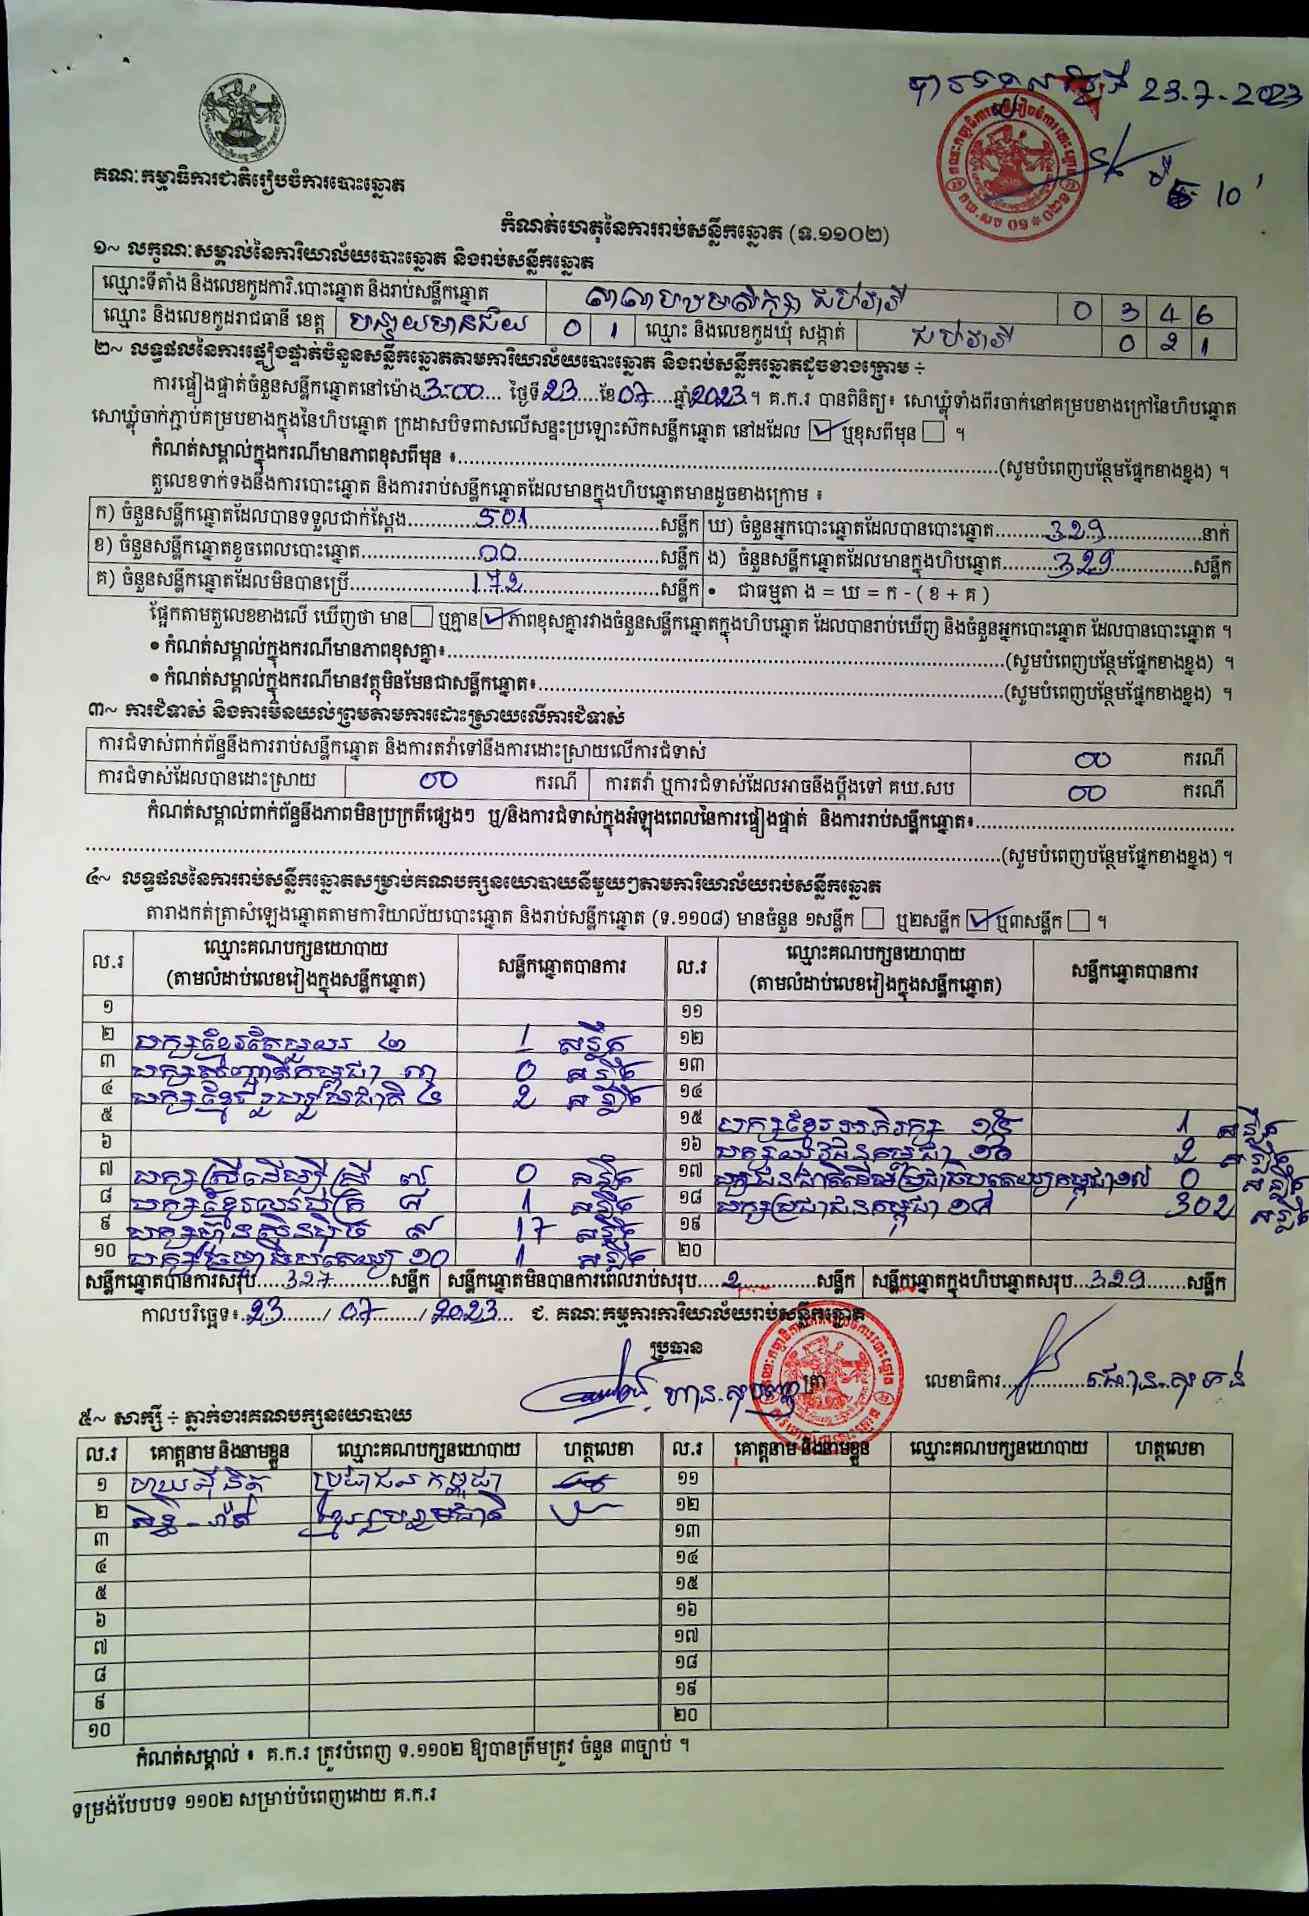 23.7.2023
10'
គណៈកម្មាធិការជាតិរៀបចំការបោះឆ្នោត
កំណត់ហេតុនៃការរាប់សន្លឹកឆ្នោត (ទ.១១០២)
១~ លក្ខណៈសម្គាល់នៃការិយាល័យបោះឆ្នោត និងរាប់សន្លឹកឆ្នោត
ឈ្មោះទីតាំង និងលេខកូដការិ.បោះឆ្នោត និងរាប់សន្លឹកឆ្នោត 0 3 4 6
ឈ្មោះ និងលេខកូដរាជធានី ខេត្ត បន្ទាយមានជ័យ 0 1 ឈ្មោះ និងលេខកូដឃុំ សង្កាត់ 0 2 1
២~ លទ្ធផលនៃការផ្ទៀងផ្ទាត់ចំនួនសន្លឹកឆ្នោតតាមការិយាល័យបោះឆ្នោត និងរាប់សន្លឹកឆ្នោតដូចខាងក្រោម ÷
ការផ្ទៀងផ្ទាត់ចំនួនសន្លឹកឆ្នោតនៅម៉ោង 3:00 ថ្ងៃទី 23 ខែ 07 ឆ្នាំ 2023 ។ គ.ក.រ បានពិនិត្យ៖ សោឃ្លុំទាំងពីរចាក់នៅគម្របខាងក្រៅនៃហិបឆ្នោត
សោឃ្លុំចាក់ភ្ជាប់គម្របខាងក្នុងនៃហិបឆ្នោត ក្រដាសបិទពាសលើសន្ទះប្រឡោះស៊កសន្លឹកឆ្នោត នៅដដែល ☑ ឬខុសពីមុន ☐ ។
កំណត់សម្គាល់ក្នុងករណីមានភាពខុសពីមុន ៖ (សូមបំពេញបន្ថែមផ្នែកខាងខ្នង) ។
តួលេខទាក់ទងនឹងការបោះឆ្នោត និងការរាប់សន្លឹកឆ្នោតដែលមានក្នុងហិបឆ្នោតមានដូចខាងក្រោម ៖
ក) ចំនួនសន្លឹកឆ្នោតដែលបានទទួលជាក់ស្តែង 501 សន្លឹក ឃ) ចំនួនអ្នកបោះឆ្នោតដែលបានបោះឆ្នោត 329 នាក់
ខ) ចំនួនសន្លឹកឆ្នោតខូចពេលបោះឆ្នោត 00 សន្លឹក ង) ចំនួនសន្លឹកឆ្នោតដែលមានក្នុងហិបឆ្នោត 329 សន្លឹក
គ) ចំនួនសន្លឹកឆ្នោតដែលមិនបានប្រើ 172 សន្លឹក • ជាធម្មតា ង = ឃ = ក - ( ខ + គ )
ផ្អែកតាមតួលេខខាងលើ ឃើញថា មាន ☐ ឬគ្មាន ☑ ភាពខុសគ្នារវាងចំនួនសន្លឹកឆ្នោតក្នុងហិបឆ្នោត ដែលបានរាប់ឃើញ និងចំនួនអ្នកបោះឆ្នោត ដែលបានបោះឆ្នោត ។
• កំណត់សម្គាល់ក្នុងករណីមានភាពខុសគ្នា៖ (សូមបំពេញបន្ថែមផ្នែកខាងខ្នង) ។
• កំណត់សម្គាល់ក្នុងករណីមានវត្ថុមិនមែនជាសន្លឹកឆ្នោត៖ (សូមបំពេញបន្ថែមផ្នែកខាងខ្នង) ។
៣~ ការជំទាស់ និងការមិនយល់ព្រមតាមការដោះស្រាយលើការជំទាស់
ការជំទាស់ពាក់ព័ន្ធនឹងការរាប់សន្លឹកឆ្នោត និងការតវ៉ាទៅនឹងការដោះស្រាយលើការជំទាស់ 00 ករណី
ការជំទាស់ដែលបានដោះស្រាយ 00 ករណី ការតវ៉ា ឬការជំទាស់ដែលអាចនឹងប្តឹងទៅ គឃ.សប 00 ករណី
កំណត់សម្គាល់ពាក់ព័ន្ធនឹងភាពមិនប្រក្រតីផ្សេងៗ ឬ/និងការជំទាស់ក្នុងអំឡុងពេលនៃការផ្ទៀងផ្ទាត់ និងការរាប់សន្លឹកឆ្នោត៖
(សូមបំពេញបន្ថែមផ្នែកខាងខ្នង) ។
៤~ លទ្ធផលនៃការរាប់សន្លឹកឆ្នោតសម្រាប់គណបក្សនយោបាយនីមួយៗតាមការិយាល័យរាប់សន្លឹកឆ្នោត
តារាងកត់ត្រាសំឡេងឆ្នោតតាមការិយាល័យបោះឆ្នោត និងរាប់សន្លឹកឆ្នោត (ទ.១១០៨) មានចំនួន ១សន្លឹក ☐ ឬ២សន្លឹក ☑ ឬ៣សន្លឹក ☐ ។
ល.រ ឈ្មោះគណបក្សនយោបាយ (តាមលំដាប់លេខរៀងក្នុងសន្លឹកឆ្នោត) សន្លឹកឆ្នោតបានការ ល.រ ឈ្មោះគណបក្សនយោបាយ (តាមលំដាប់លេខរៀងក្នុងសន្លឹកឆ្នោត) សន្លឹកឆ្នោតបានការ
១ ១១
២ បក្សខ្មែរតែមួយ ២ 1 សន្លឹក ១២
៣ បក្សសញ្ជាតិកម្ពុជា ៣ 0 សន្លឹក ១៣
៤ បក្សខ្មែររួបរួមជាតិ ៤ 2 សន្លឹក ១៤
៥ ១៥ បក្សខ្មែរអភិរក្ស ១៥ 1 សន្លឹក
៦ ១៦ 2 សន្លឹក
៧ បក្សស្រីដើម្បីស្រី ៧ 0 សន្លឹក ១៧ 0 សន្លឹក
៨ ៨ 1 សន្លឹក ១៨ បក្សប្រជាជនកម្ពុជា ១៨ 302 សន្លឹក
៩ បក្សហ៊្វុនស៊ិនប៉ិច ៩ 17 សន្លឹក ១៩
១០ ១០ 1 សន្លឹក ២០
សន្លឹកឆ្នោតបានការសរុប 327 សន្លឹក សន្លឹកឆ្នោតមិនបានការពេលរាប់សរុប 2 សន្លឹក សន្លឹកឆ្នោតក្នុងហិបឆ្នោតសរុប 329 សន្លឹក
កាលបរិច្ឆេទ៖ 23 / 07 / 2023 ជ. គណៈកម្មការការិយាល័យរាប់សន្លឹកឆ្នោត
ប្រធាន
ត្រា លេខាធិការ
៥~ សាក្សី ÷ ភ្នាក់ងារគណបក្សនយោបាយ
ល.រ គោត្តនាម និងនាមខ្លួន ឈ្មោះគណបក្សនយោបាយ ហត្ថលេខា ល.រ គោត្តនាម និងនាមខ្លួន ឈ្មោះគណបក្សនយោបាយ ហត្ថលេខា
១ ប្រជាជនកម្ពុជា ១១
២ ខ្មែររួបរួមជាតិ ១២
៣ ១៣
៤ ១៤
៥ ១៥
៦ ១៦
៧ ១៧
៨ ១៨
៩ ១៩
១០ ២០
កំណត់សម្គាល់ ៖ គ.ក.រ ត្រូវបំពេញ ទ.១១០២ ឱ្យបានត្រឹមត្រូវ ចំនួន ៣ច្បាប់ ។
ទម្រង់បែបបទ ១១០២ សម្រាប់បំពេញដោយ គ.ក.រ